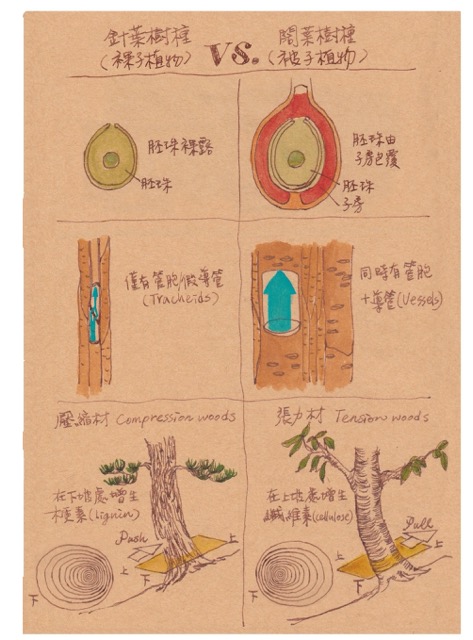 針葉樹種
(裸子植物)
VS.
闊葉樹種
(被子植物)
胚珠裸露
胚珠
胚珠由
子房包覆
胚珠
子房
僅有管胞做導管
(Tracheids)
同時有管胞
+導管(Vessels)
壓縮材 Compression woods
張力材 Tension woods
在下坡處增生
木質素(lignin)
Push
上
下
上
下
在上坡處增生
纖維素(cellulose)
Pull
上
下
上
下